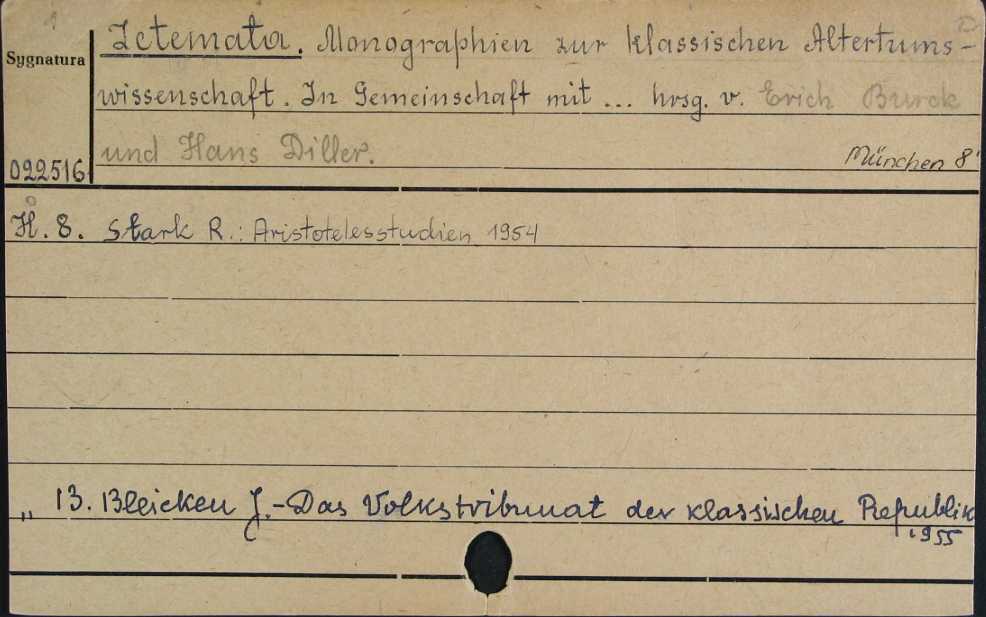 Zetemata. Monographien zur klassischen Altertums-
Sygnatura
wissenschaft. In Gemeinschaft mit ... hrsg. v. Erich Burck
und Hans Diller.
München 8'
022516
H. 8. Stark R.: Aristotelesstudien 1954
„ 13. Bleicken J.-Das Volkstribunat der klassischen Republik
1955